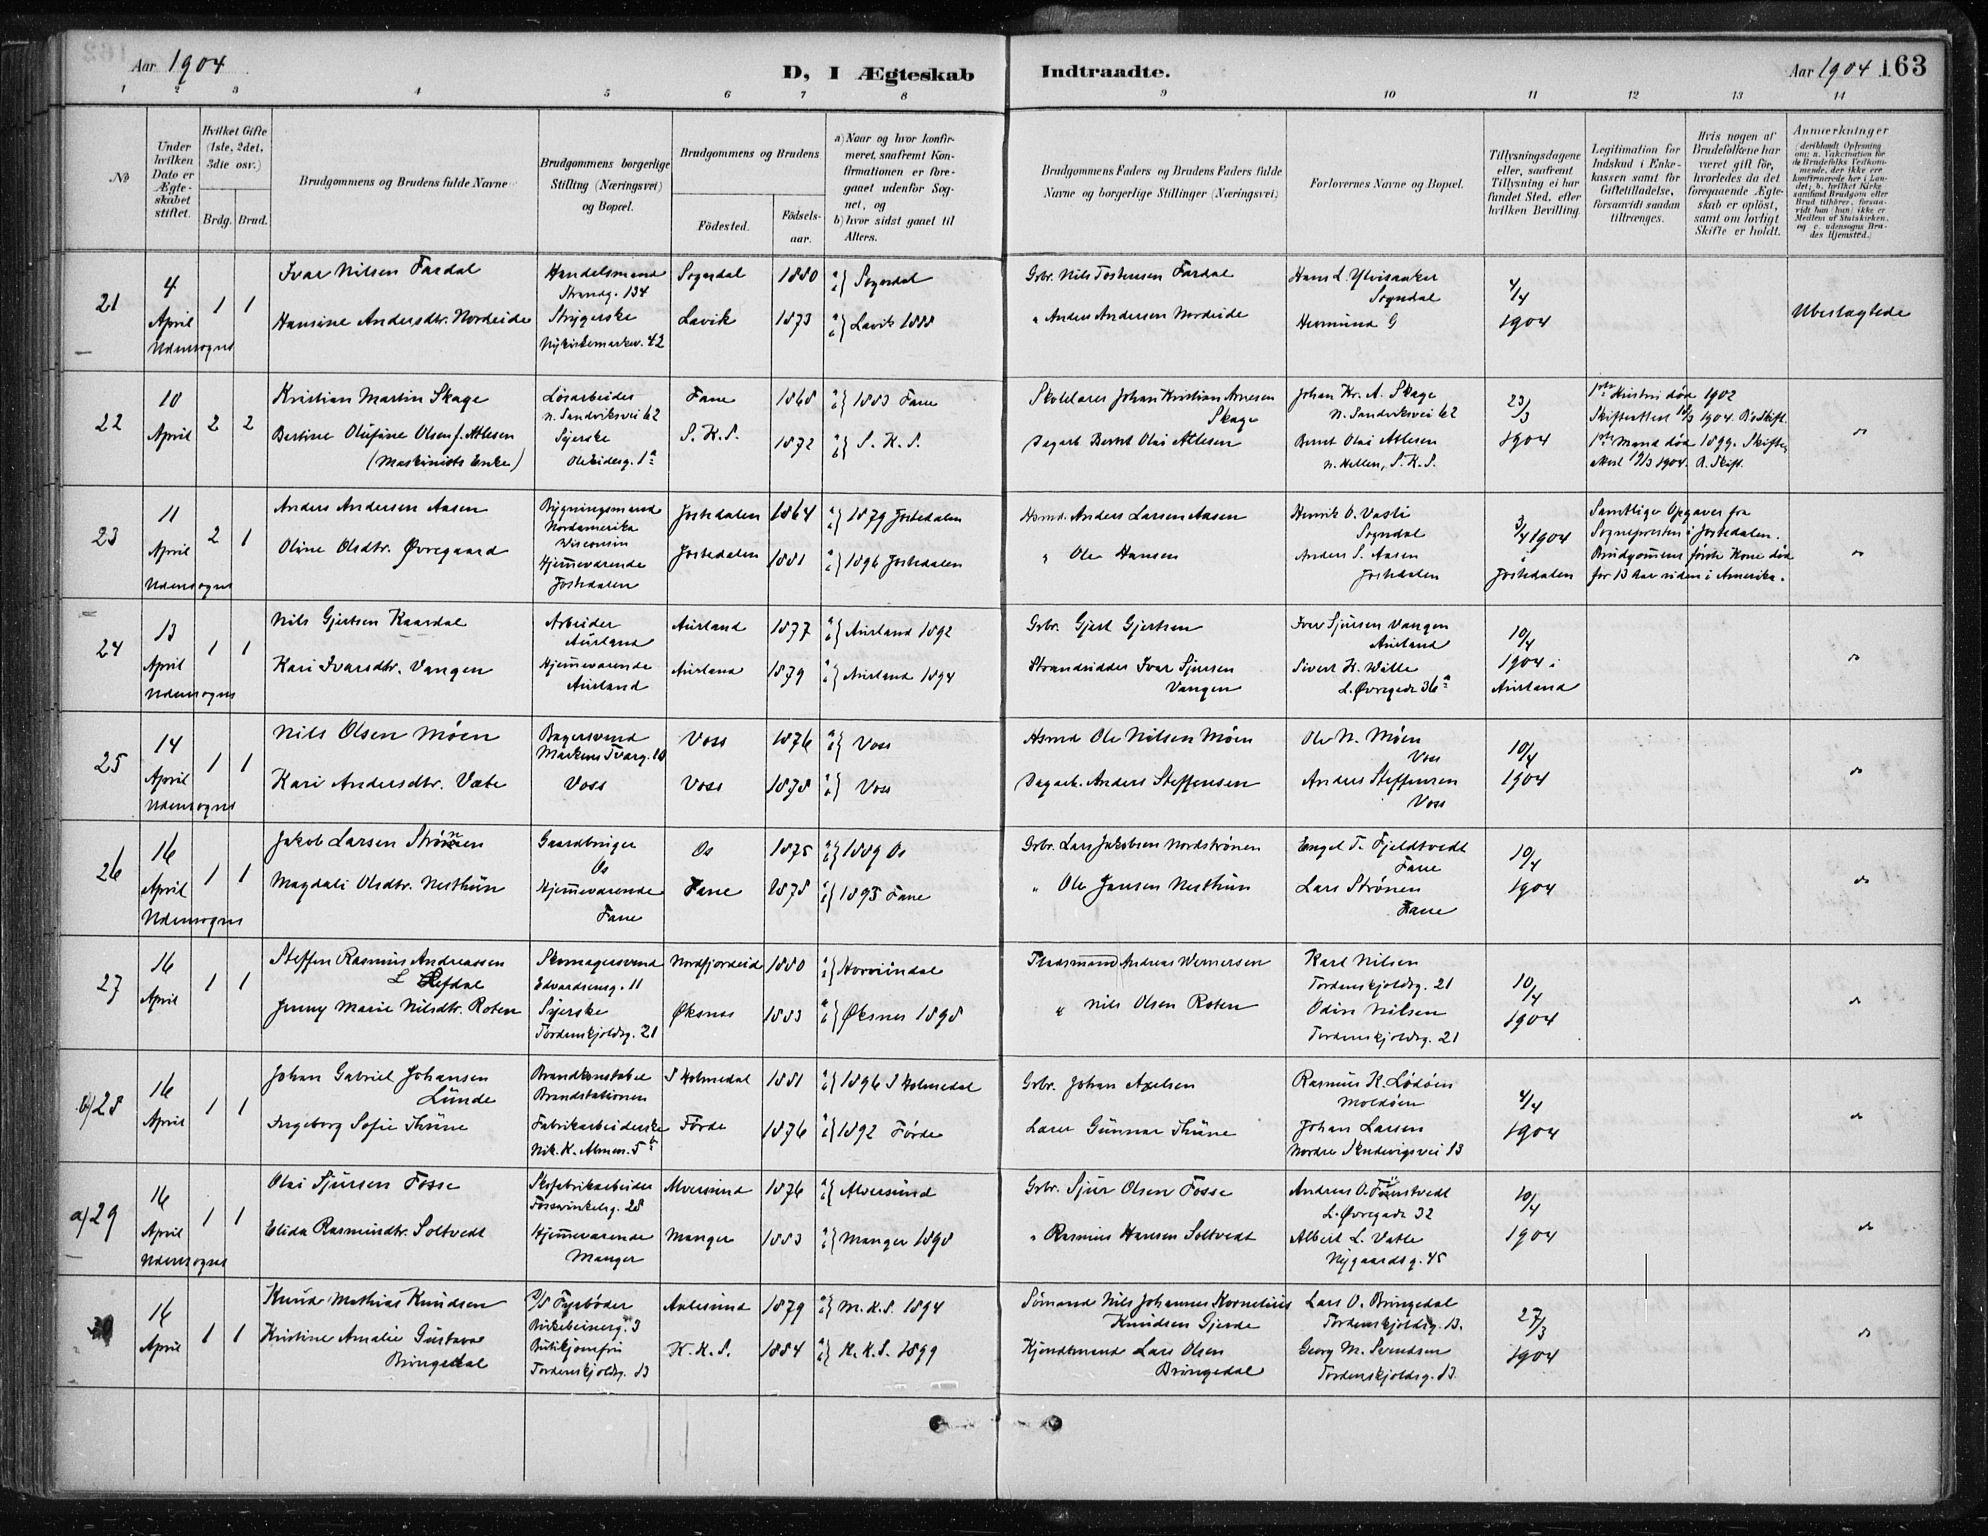 Aar 1904
D, I Ægteskab Indtraadte.
Aar 1904 163
1 2 3 4 5 6 7 8 9 10 11 12 13 14
No
Under hvilken Dato er Ægteskabet stiftet.
Hvilket Gifte (1ste, 2det, 3dte osv.)
Brdg. Brud.
Brudgommens og Brudens fulde Navne
Brudgommens borgerlige Stilling (Næringsvei) og Bopæl.
Brudgommens og Brudens
Födested. Födselsaar.
a) Naar og hvor konfirmeret, saafremt Konfirmationen er foregaaet udenfor Sognet, og
b) hvor sidst gaaet til Alters.
Brudgommens Faders og Brudens Faders fulde Navne og borgerlige Stillinger (Næringsvei)
Forlovernes Navne og Bopæl.
Tillysningsdagene eller, saafremt Tillysning ei har fundet Sted, efter hvilken Bevilling.
Legitimation for Indskud i Enkekassen samt for Giftetilladelse, forsaavidt saadan tiltrænges.
Hvis nogen af Brudefolkene har været gift för, hvorledes da det foregaaende Ægteskab er oplöst, samt om lovligt Skifte er holdt.
Anmerkninger (deriblandt Oplysning om: a. Vakcination for de Brudefolks Vedkommende, der ikke ere konfirmerede her i Landet; b. hvilket Kirkesamfund Brudgom eller Brud tilhörer, forsaavidt han (hun) ikke er Medlem af Statskirken, og c. udensogns Brudes Hjemsted.)
21 4 April Udensogns 1 1
Ivar Nilsen Fardal Handelsmand Strandg. 134 Sogndal 1880 a} b} Sogndal Grbr. Nils Tostensen Fardal Hans L. Ylvisaaker Sogndal 4/4 1904 Ubeslægtede
Hansine Andersdtr. Nordeide Strygerske Nykirkemarkev. 42 Lavik 1873 a} b} Lavik 1888 " Anders Andersen Nordeide Hermund G
22 10 April 2 2
Kristian Martin Skage Løsarbeider n. Sandviksvei 62 Fane 1868 a} b} 1883 Fane Skolelærer Johan Kristian Arnesen Skage Johan Kr. A. Skage N. Sandviksvei 62 23/3 1904 1ste Hustru død 1902 do
Bertine Olufine Olsen f. Atlesen (Maskinists Enke) Syerske S.K.S. 1872 a} b} S.K.S. Dagarb. Bernt Olai Atlesen Bernt Olai Atlesen n. Hellen, S.K.S. 1ste Mand død 1899.
23 11 April Udensogns 2 1
Anders Andersen Aasen Bygningsmand Nordamerika Wisconsin Jostedalen 1864 a} b} 1879 Jostedalen Hsmd. Anders Larsen Aasen Henrik O. Vasti Sogndal 3/4 1904 i Jostedalen Samtlige Opgaver fra Sognepresten i Jostedalen. Brudgommens første Kone død for 13 Aar siden i Amerika. do
Oline Olsdtr. Øvregaard Hjemmeværende Jostedalen Jostedalen 1881 a} b} 1896 Jostedalen " Ole Hansen Anders S. Aasen Jostedalen
24 13 April Udensogns 1 1
Nils Gjertsen Kaardal Arbeider Aurland Aurland 1877 a} b} Aurland 1892 Grbr. Gjert Gjertsen Iver Sjursen Vangen Aurland 10/4 1904 i Aurland do
Kari Ivarsdtr. Vangen Hjemmeværende Aurland Aurland 1879 a} b} Aurland 1894 Strandsidder Ivar Sjursen Vangen Sivert H. Wille L. Øvregade 36a
25 14 April Udensogns 1 1
Nils Olsen Møen Bagersvend Markens Tværg. 10 Voss 1876 a} b} Voss Hsmd Ole Nilsen Møen Ole N. Møen Voss 10/4 1904 do
Kari Andersdtr. Væte Voss Voss 1878 a} b} Voss Dagarb. Anders Steffensen Anders Steffensen Voss
26 16 April Udensogns 1 1
Jakob Larsen Strønen Gaardbruger Os Os 1875 a} b} 1889 Os Grbr. Lars Jakobsen Nordstrønen Engel T. Fjeldtvedt Fane 10/4 1904 do
Magdali Olsdtr. Nesthun Hjemmeværende Fane Fane 1878 a} b} 1893 Fane " Ole Jansen Nesthun Lars Strønen Fane
27 16 April 1 1
Steffen Rasmus Andreassen Lefdal Skomagersvend Edvardsensg. 11 Nordfjordeide 1880 a} b} Hornindal Pladsmand Andreas Wernersen Karl Nilsen Tordenskjoldsg. 21 10/4 1904 do
Jenny Marie Nilsdtr. Roten Syerske Tordenskjoldsg. 21 Øksnes 1883 a} b} Øksnes 1898 " Nils Olsen Roten Odin Nilsen Tordenskjoldsg. 21
b) 28 16 April 1 1
Johan Gabriel Johansen Lunde Brandkonstabel Brandstationen I Holmedal 1881 a} b} 1896 I Holmedal Grbr. Johan Axelsen Rasmus K. Lødøen Moldøen 4/4 1904 do
Ingeborg Sofie Thune Fabrikarbeiderske Nik. K. Almen. 5b Førde 1876 a} b} 1892 Førde Lærer Gunnar Thune Johan Larsen Nordre Skudevigsvei 13
a) 29 16 April Udensogns 1 1
Olai Sjursen Fosse Skofabrikarbeider Fosswinkelsg. 28 Alversund 1876 a} b} Alversund Grbr. Sjur Olsen Fosse L. Øvregade 32 10/4 1904 do
Elida Rasmusdtr. Soltvedt Hjemmeværende Manger Manger 1883 a} b} Manger 1898 " Rasmus Hansen Soltvedt Albert L. Vatle Nygaardsg. 45
30 16 April 1 1
Knud Mathias Knudsen D/S Fyrbøder Birkebeinerg. 3 Aalesund 1879 a} b} M.K.S. 1894 Sømand Nils Johannes Kornelius Knudsen Gjerde Lars O. Bringedal Tordenskjoldsg. 13. 27/3 1904 do
Kristine Amalie Gustava Bringedal Butikjomfru Tordenskjoldsg. 13 K.K.S. 1884 a} b} K.K.S. 1899 Kjøndtmand Lars Olsen Bringedal Georg M. Svendsen Tordenskjoldsg. 13